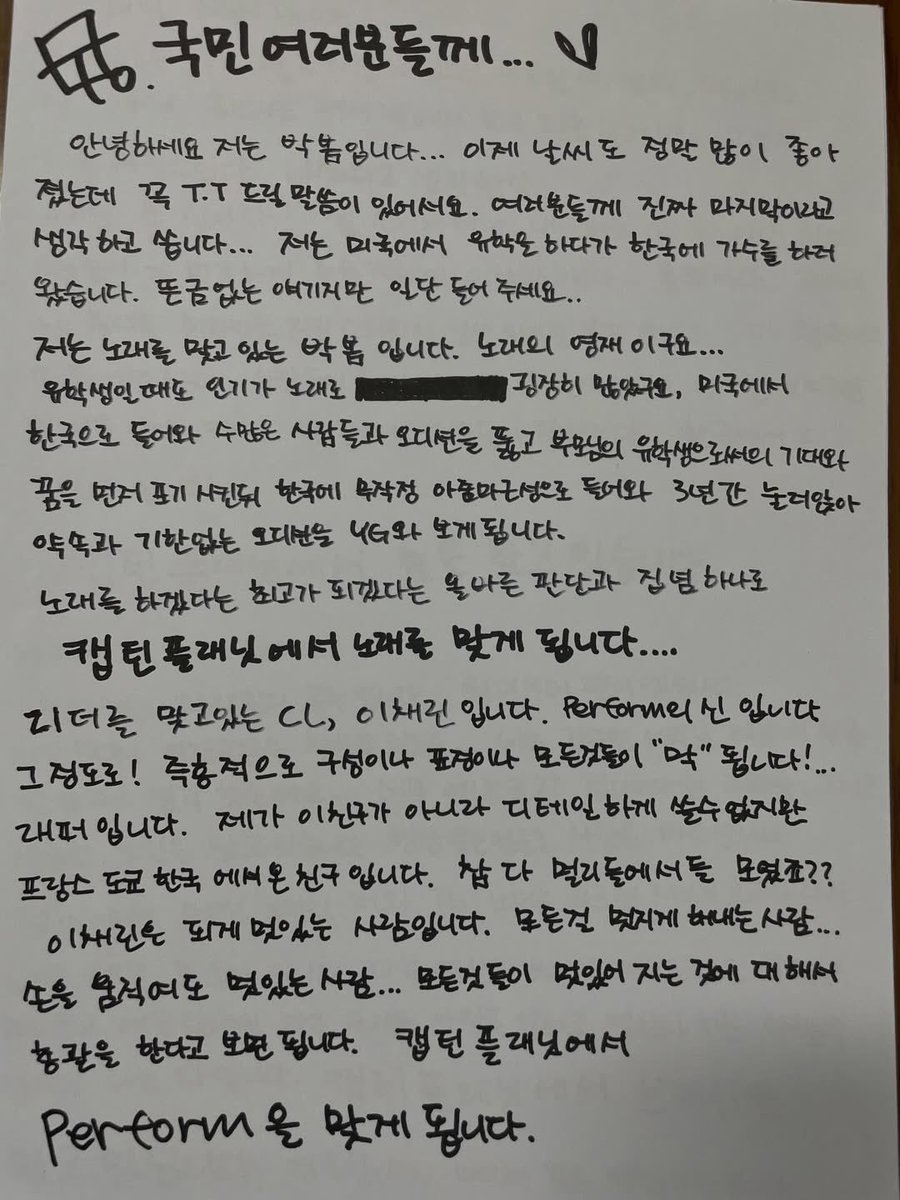 국민여러분들께...
안녕하세요 저는 박봄입니다... 이제 날씨도 정막 많이 좋아
졌는데 꼭 T.T 드릴말씀이 있어서요. 여러분들께 진짜 마지막이라고
생각하고 씁니다... 저는 미국에서 유학을 하다가 한국에 가수를 하러
왔습니다. 뜬금없는 얘기지만 일단 들어 주세요..
저는 노래를 맞고 있는 박봄 입니다. 노래의 영재이구요...
유학생일때도 인기가 노래로 굉장히 많았구요, 미국에서
한국으로 들어와 수많은 사람들과 오디션을 뚫고 부모님의 유학생으로써의 기대와
꿈을 먼저 포기 시킨뒤 한국에 무작정 아줌마근성으로 들어와 3년간 눌러앉아
약속과 기한없는 오디션을 YG와 보게됩니다.
노래를 하겠다는 최고가 되겠다는 올바른 판단과 집념하나로
캡틴플래닛에서 노래를 맞게 됩니다....
리더를 맞고있는 CL, 이채린입니다. Perform의 신 입니다
그정도로! 즉흥적으로 구성이나 표정이나 모든것들이 "막" 됩니다!...
래퍼입니다. 제가 이친구가 아니라 디테일하게 쓸수없지만
프랑스 도쿄 한국 에서온 친구입니다. 참 다 멀리들에서들 모였죠??
이채린은 되게 멋있는 사람입니다. 모든걸 멋지게 해내는사람...
손을 움직여도 멋있는사람... 모든것들이 멋있어 지는 것에 대해서
총괄을 한다고 보면 됩니다. 캡틴 플래닛에서
Perform을 맞게 됩니다.